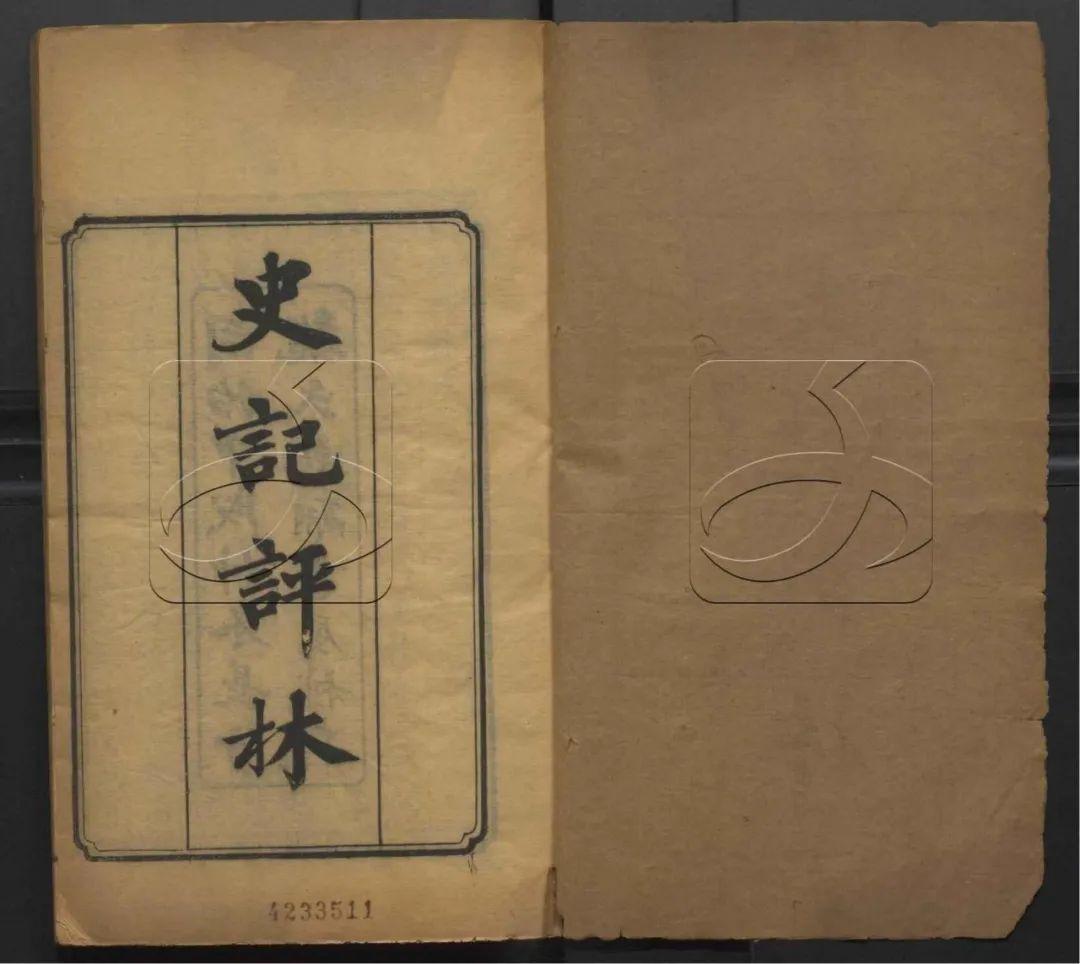 史記評林
4233511